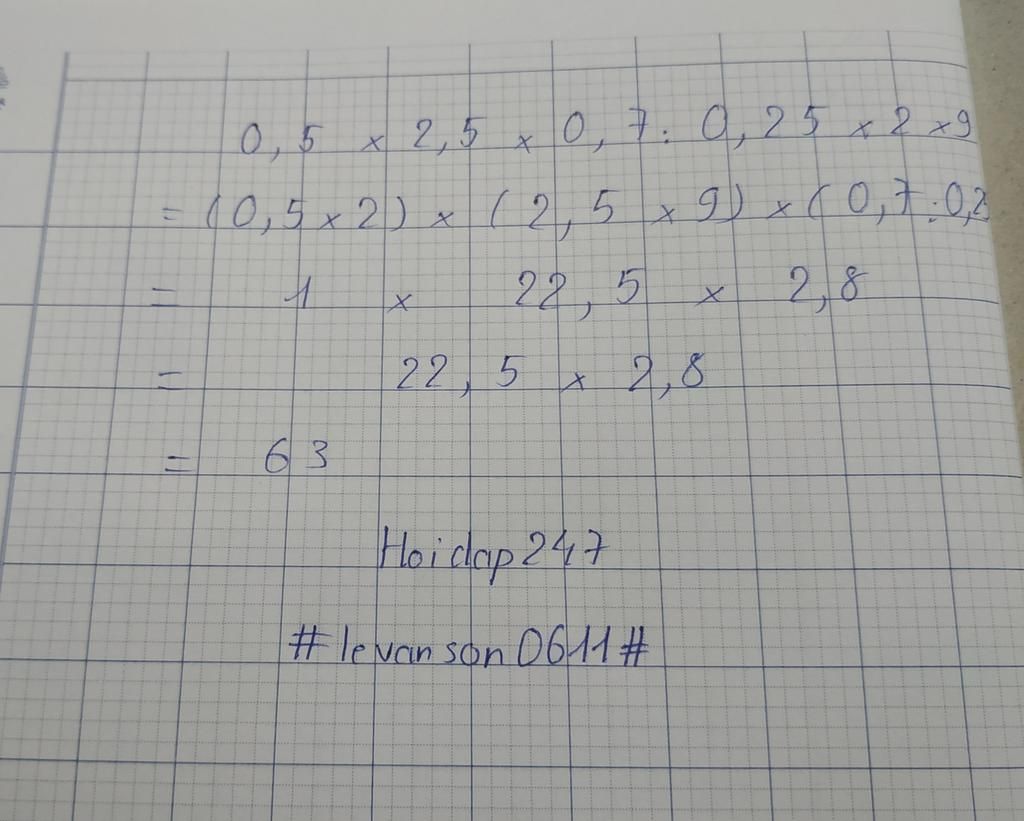 0,5 × 2,5 × 0,7 : 0,25 × 2 × 9
= (0,5 × 2) × (2,5 × 9) × (0,7 : 0,2
= 1 × 22,5 × 2,8
= 22,5 × 2,8
= 63
Hoidap247
#levanson0611#